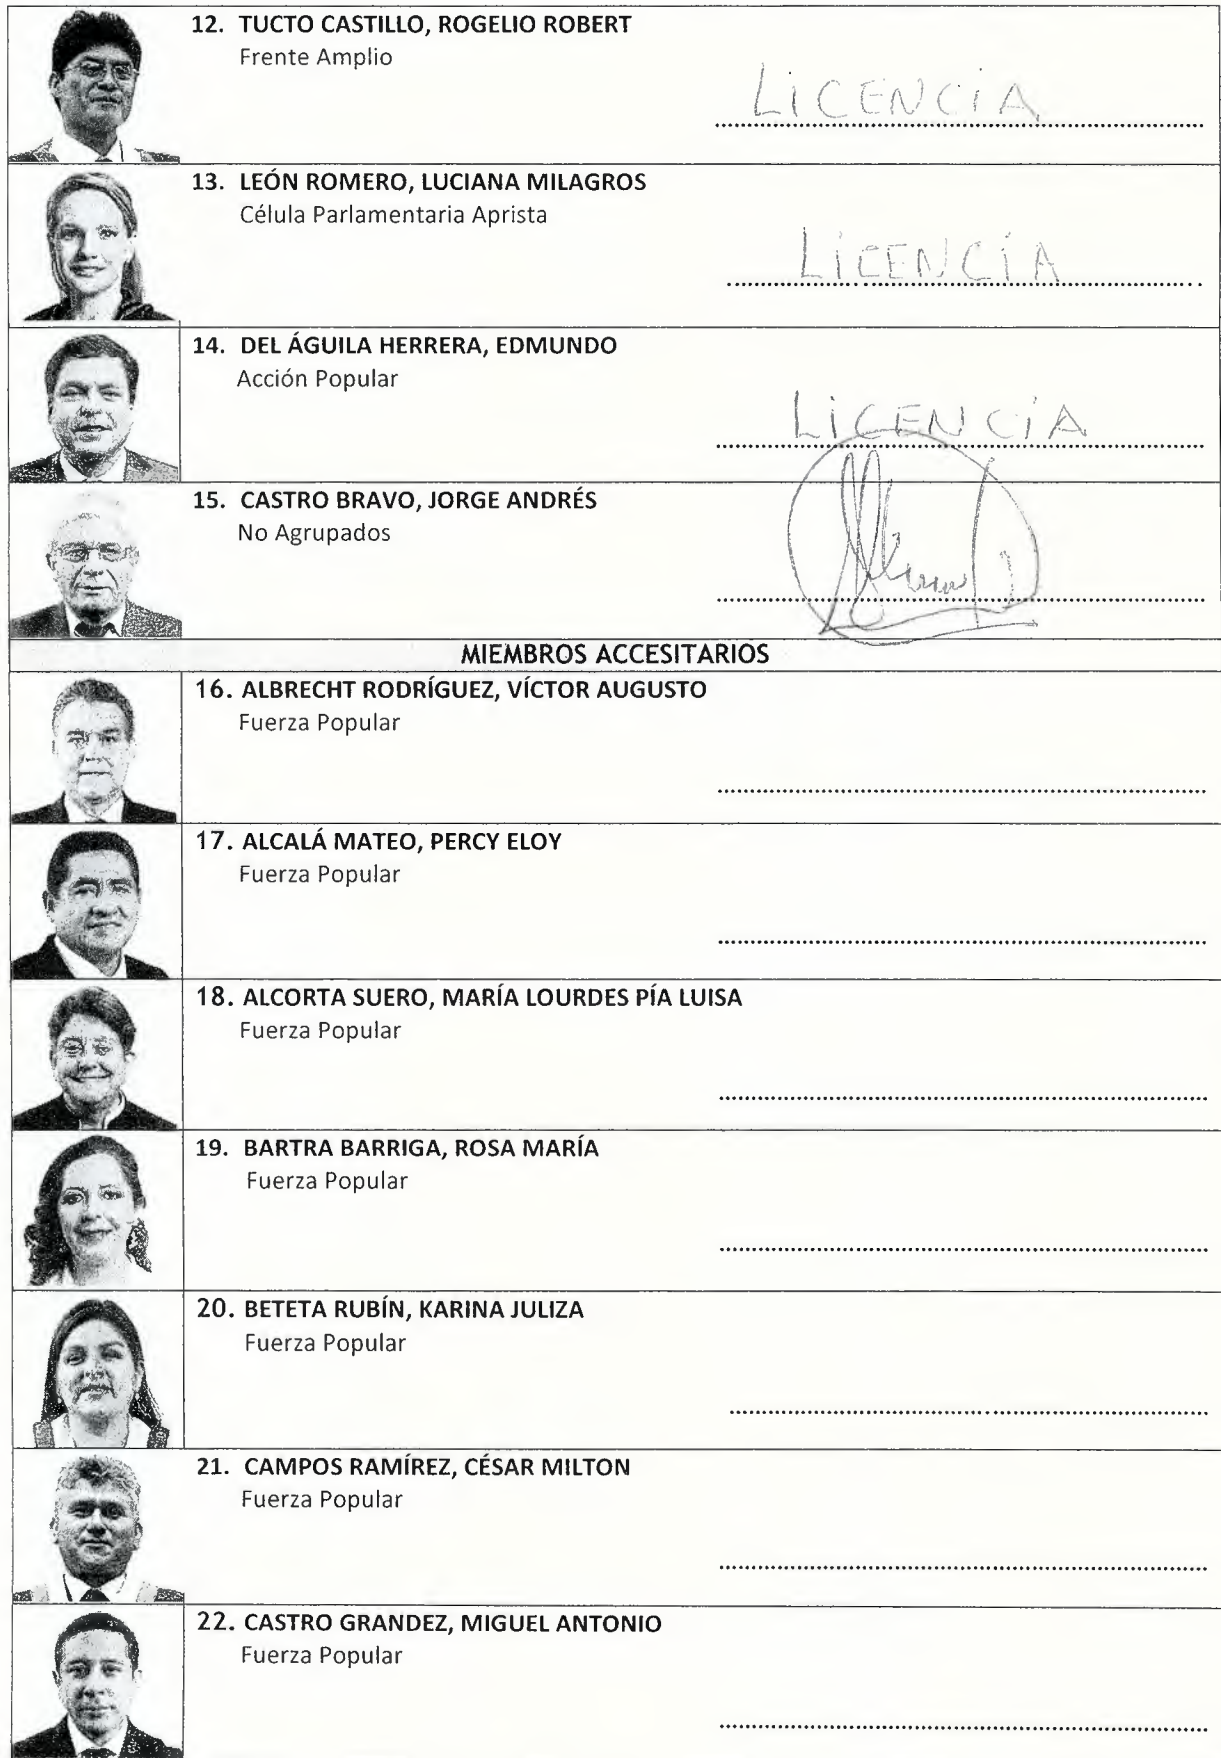 12. TUCTO CASTILLO, ROGELIO ROBERT
Frente Amplio
LiCENCiA
13. LEÓN ROMERO, LUCIANA MILAGROS
Célula Parlamentaria Aprista
LiCENCiA
14. DEL ÁGUILA HERRERA, EDMUNDO
Acción Popular
LiCENCiA
15. CASTRO BRAVO, JORGE ANDRÉS
No Agrupados
MIEMBROS ACCESITARIOS
16. ALBRECHT RODRÍGUEZ, VÍCTOR AUGUSTO
Fuerza Popular
17. ALCALÁ MATEO, PERCY ELOY
Fuerza Popular
18. ALCORTA SUERO, MARÍA LOURDES PÍA LUISA
Fuerza Popular
19. BARTRA BARRIGA, ROSA MARÍA
Fuerza Popular
20. BETETA RUBÍN, KARINA JULIZA
Fuerza Popular
21. CAMPOS RAMÍREZ, CÉSAR MILTON
Fuerza Popular
22. CASTRO GRANDEZ, MIGUEL ANTONIO
Fuerza Popular